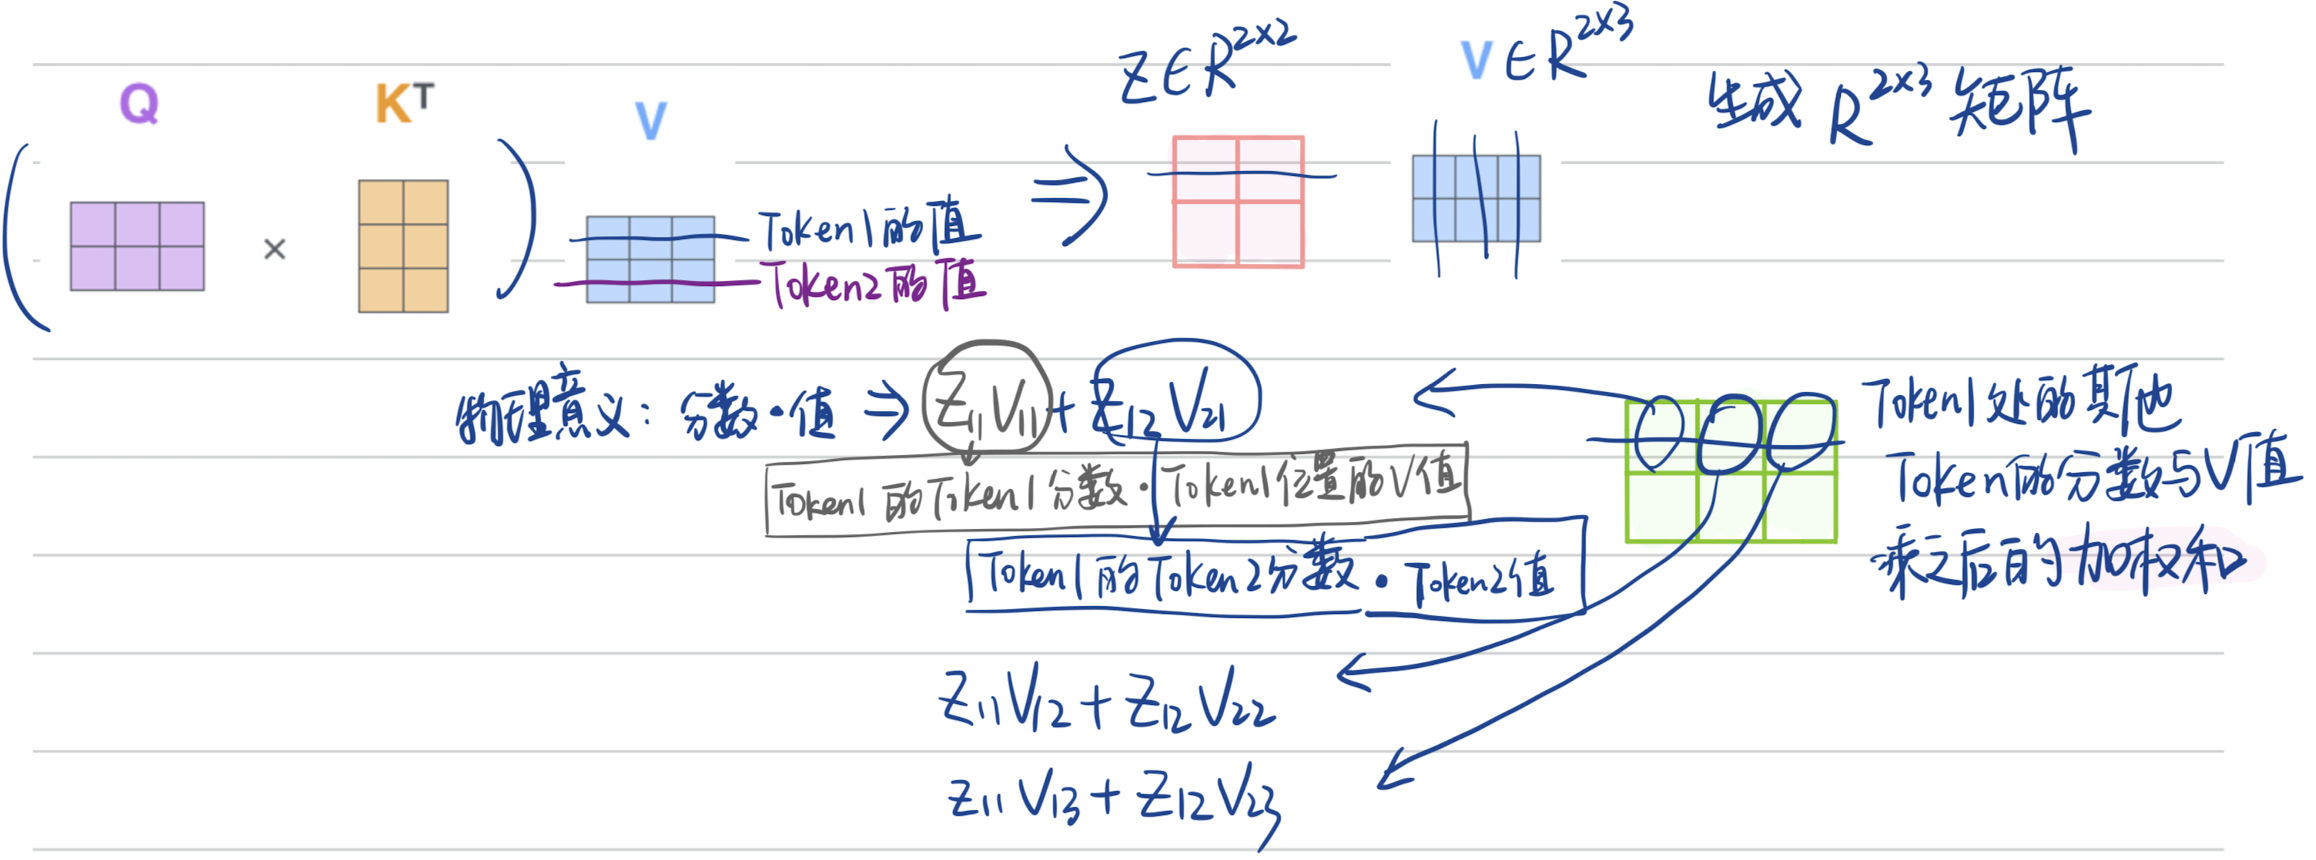 Q × K^T V
Token1的值
Token2的值
⇒ Z∈R^{2×2} V∈R^{2×3} 生成 R^{2×3} 矩阵
物理意义: 分数·值 ⇒ Z_{11}V_{11} + Z_{12}V_{21}
Token1的Token1分数·Token1位置的V值
Token1的Token2分数·Token2值
Z_{11}V_{12} + Z_{12}V_{22}
Z_{11}V_{13} + Z_{12}V_{23}
Token1处的其他
Token的分数与V值
乘之后的加权和